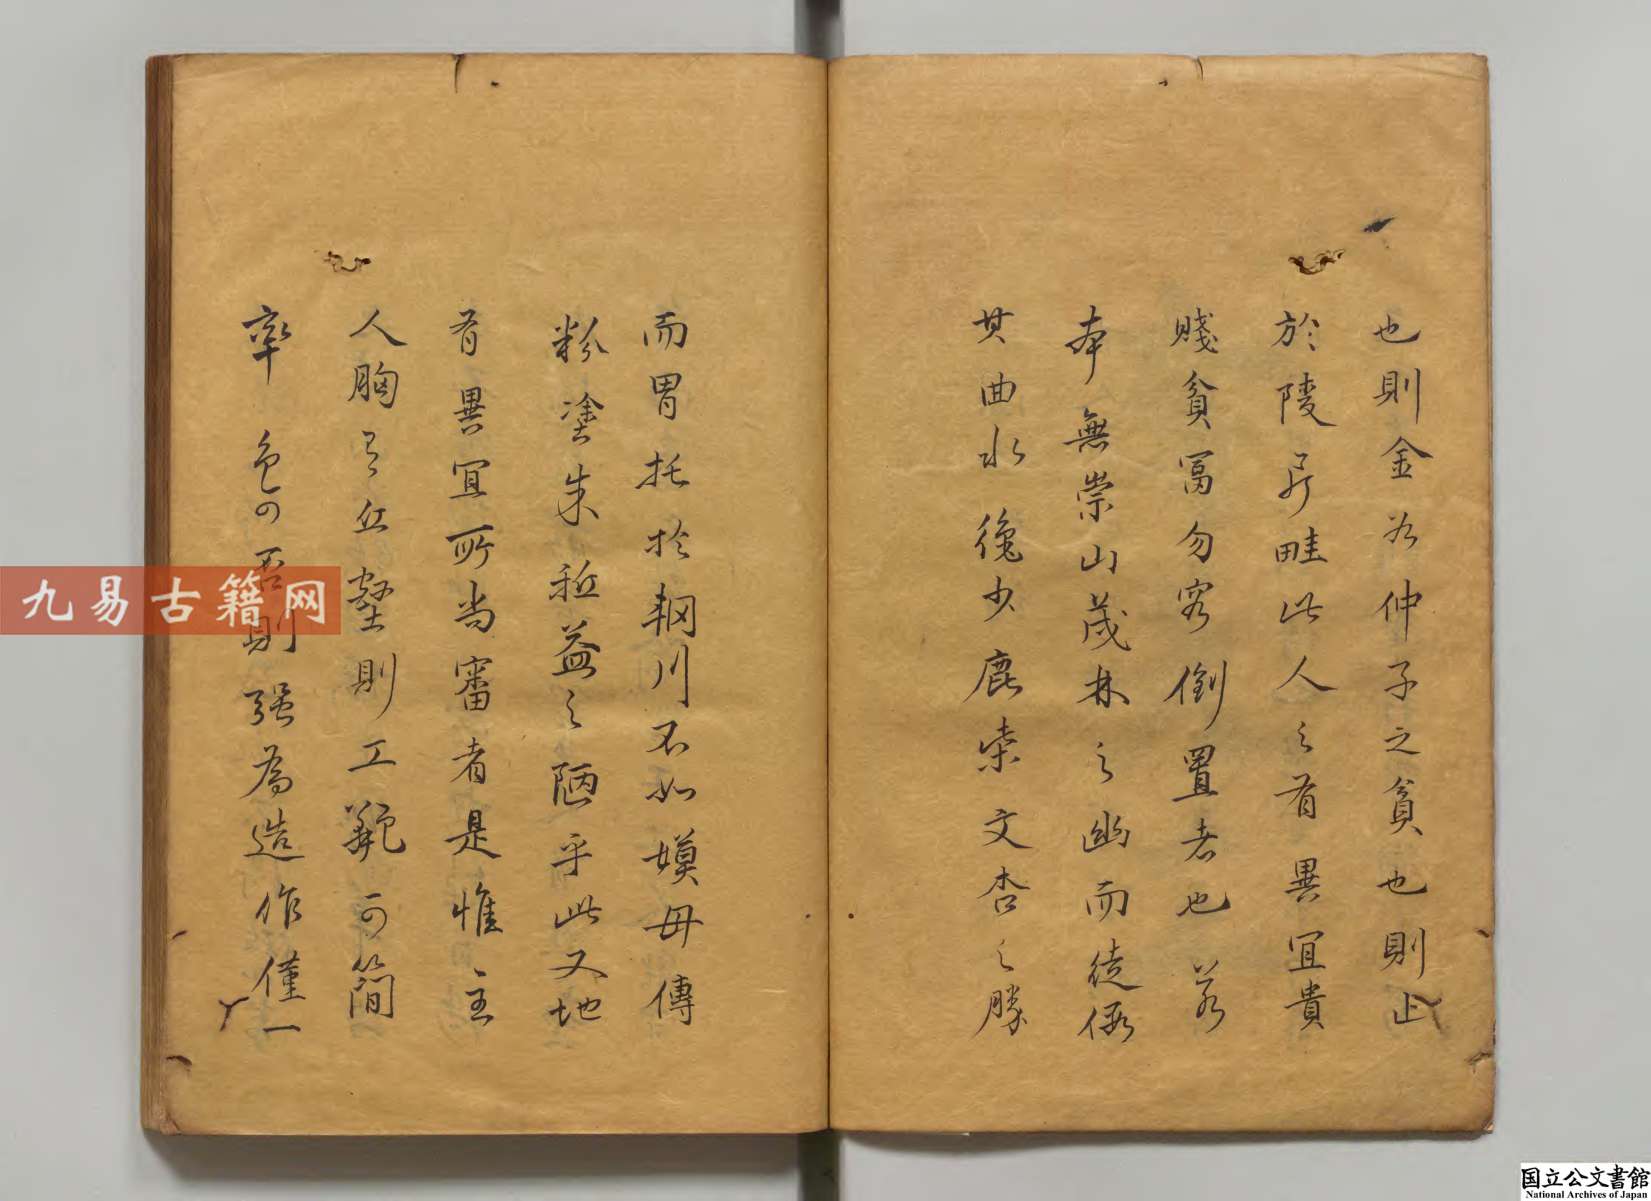 也則金谷仲子之貧也則止
於陵片畦此人之有異宜貴
賤貧富勿容倒置者也若
本無崇山茂林之幽而徒假
其曲水後少鹿柴文杏之勝
而冒托於輞川不如嫫母傅
粉塗朱秪益之陋乎此又地
有異冝所当審者是惟主
人胸有丘壑則工麗可簡
率亦可否則強為造作僅一
九易古籍网
国立公文書館
National Archives of Japan